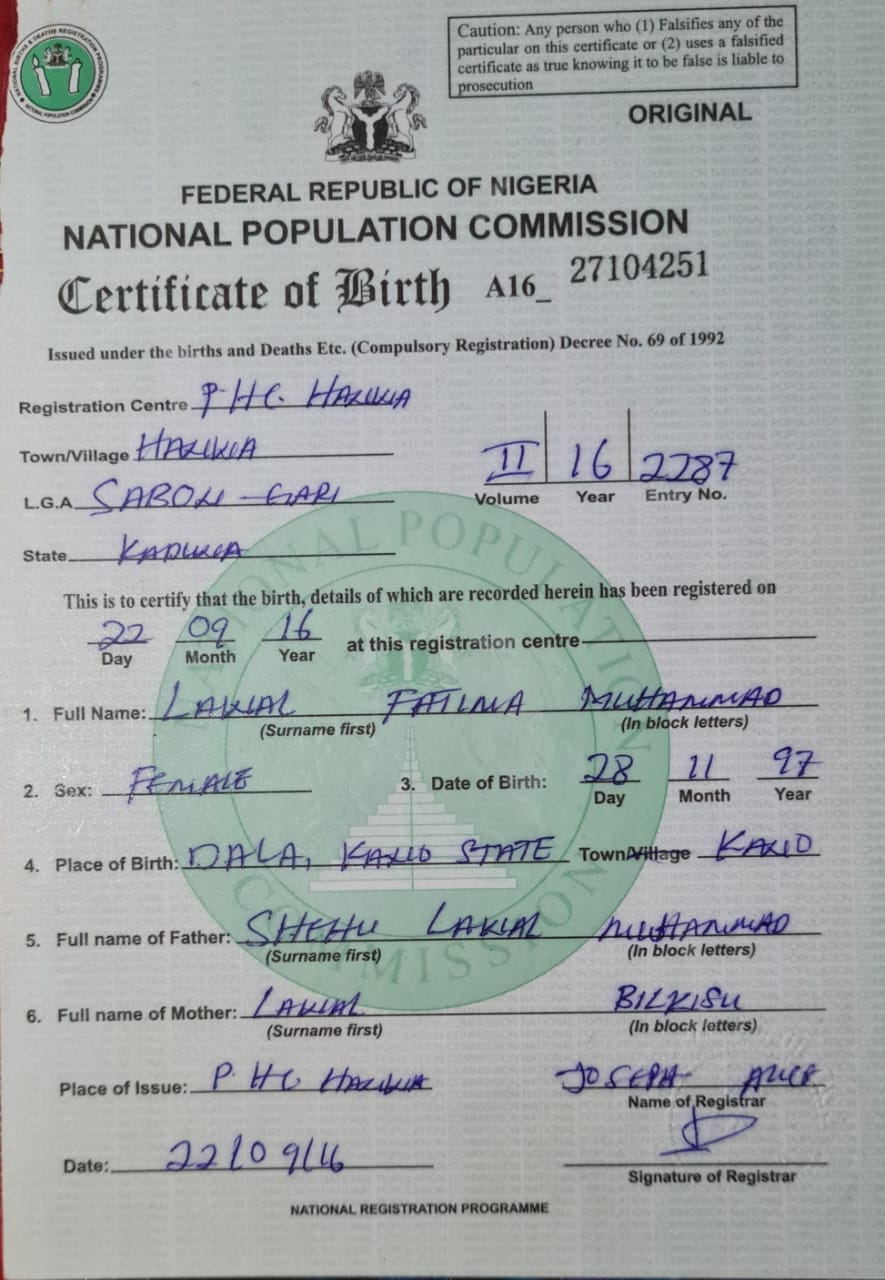 Caution: Any person who (1) Falsifies any of the
particular on this certificate or (2) uses a falsified
certificate as true knowing it to be false is liable to
prosecution
ORIGINAL
FEDERAL REPUBLIC OF NIGERIA
NATIONAL POPULATION COMMISSION
Certificate of Birth A16_ 27104251
Issued under the births and Deaths Etc. (Compulsory Registration) Decree No. 69 of 1992
Registration Centre P.H.C. HANWA
Town/Village HANWA
II 16 2287
Volume Year Entry No.
L.G.A SABON GARI
State KADUNA
This is to certify that the birth, details of which are recorded herein has been registered on
22 09 16 at this registration centre
Day Month Year
1. Full Name: LAWAL FATIMA MUHAMMAD
(Surname first) (In block letters)
2. Sex: FEMALE 3. Date of Birth: 28 11 97
Day Month Year
4. Place of Birth: DALA, KANO STATE Town/Village KANO
5. Full name of Father: SHEHU LAWAL MUHAMMAD
(Surname first) (In block letters)
6. Full name of Mother: LAWAL BILKISU
(Surname first) (In block letters)
Place of Issue: P.H.C HANWA JOSEPH
Name of Registrar
Date: 22/09/16
Signature of Registrar
NATIONAL REGISTRATION PROGRAMME
NATIONAL POPULATION COMMISSION